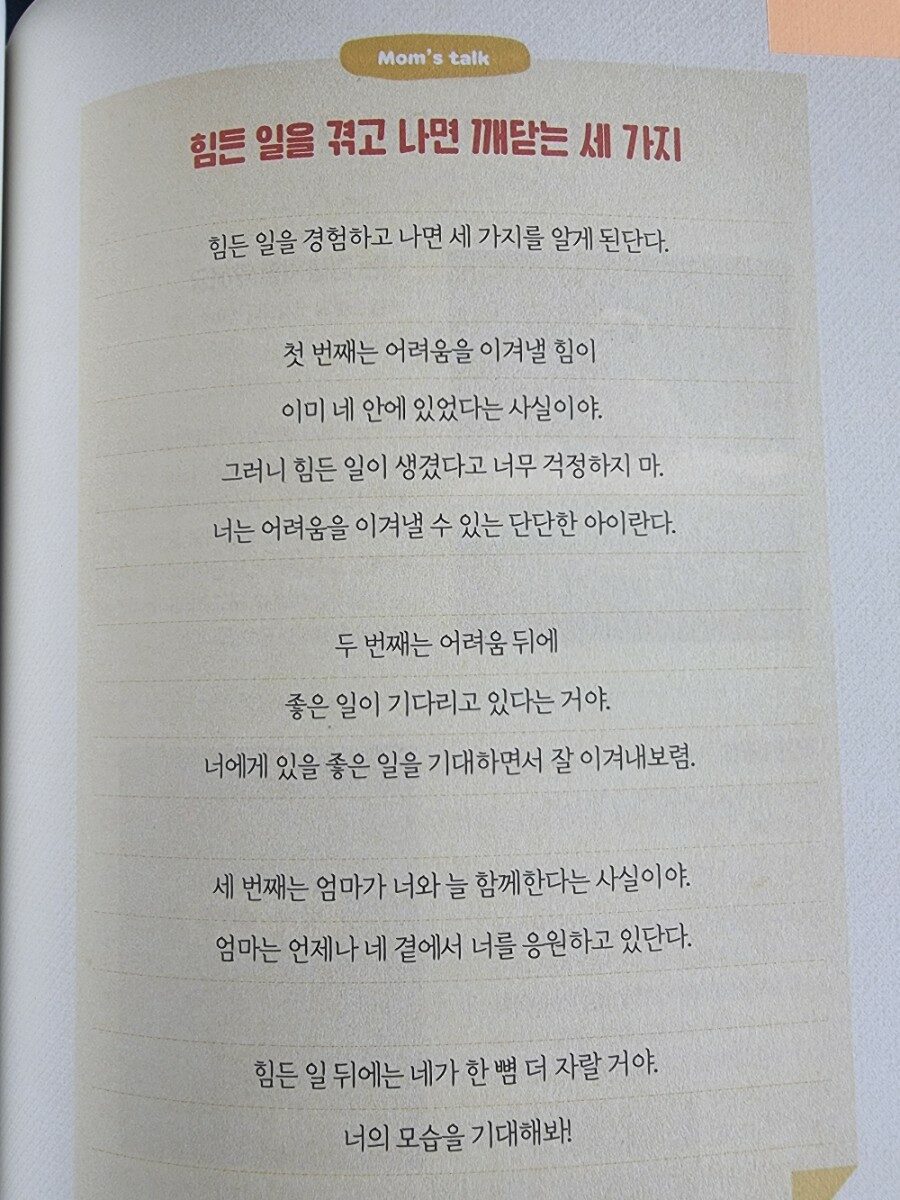 Mom's talk
힘든 일을 겪고 나면 깨닫는 세 가지
힘든 일을 경험하고 나면 세 가지를 알게 된단다.
첫 번째는 어려움을 이겨낼 힘이
이미 네 안에 있었다는 사실이야.
그러니 힘든 일이 생겼다고 너무 걱정하지 마.
너는 어려움을 이겨낼 수 있는 단단한 아이란다.
두 번째는 어려움 뒤에
좋은 일이 기다리고 있다는 거야.
너에게 있을 좋은 일을 기대하면서 잘 이겨내보렴.
세 번째는 엄마가 너와 늘 함께한다는 사실이야.
엄마는 언제나 네 곁에서 너를 응원하고 있단다.
힘든 일 뒤에는 네가 한 뼘 더 자랄 거야.
너의 모습을 기대해봐!